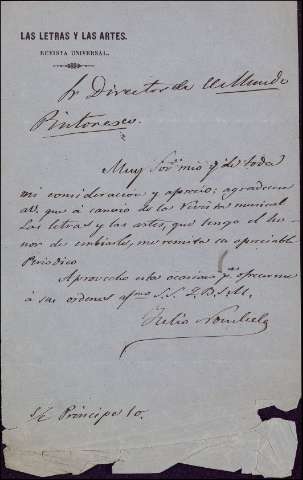 LAS LETRAS Y LAS ARTES.
REVISTA UNIVERSAL.
Sr Director de El Mundo
Pintoresco.
Muy Sor mio y de toda
mi consideracion y aprecio: agradeceria
a V. que á cambio de la revista musical
Las letras y las artes, que tengo el ho-
nor de embiarle, me remita su apreciable
Periodico
Aprovecho esta ocasion pa ofrecerme
á sus ordenes afmo S.S. Q.B.S.M.
Julio Nombela
S/C Principe 10.